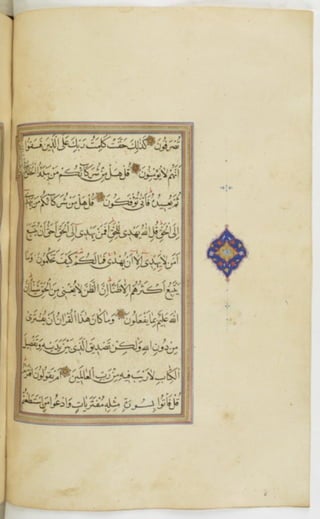 تصرفون كذلك حقت كلمت ربك على الذين فسقوا
انهم لا يؤمنون قل هل من شركائكم من يبدؤا الخلق
ثم يعيده فانى تؤفكون قل هل من شركائكم من يهدي
الى الحق قل الله يهدي للحق افمن يهدي الى الحق احق ان يتبع
امن لا يهدي الا ان يهدى فما لكم كيف تحكمون وما
يتبع اكثرهم الا ظنا ان الظن لا يغني من الحق شيئا ان
الله عليم بما يفعلون وما كان هذا القران ان يفترى
من دون الله ولكن تصديق الذي بين يديه وتفصيل
الكتاب لا ريب فيه من رب العالمين ام يقولون افتريه
قل فاتوا بسورة مثله مفتريات وادعوا من استطعتم